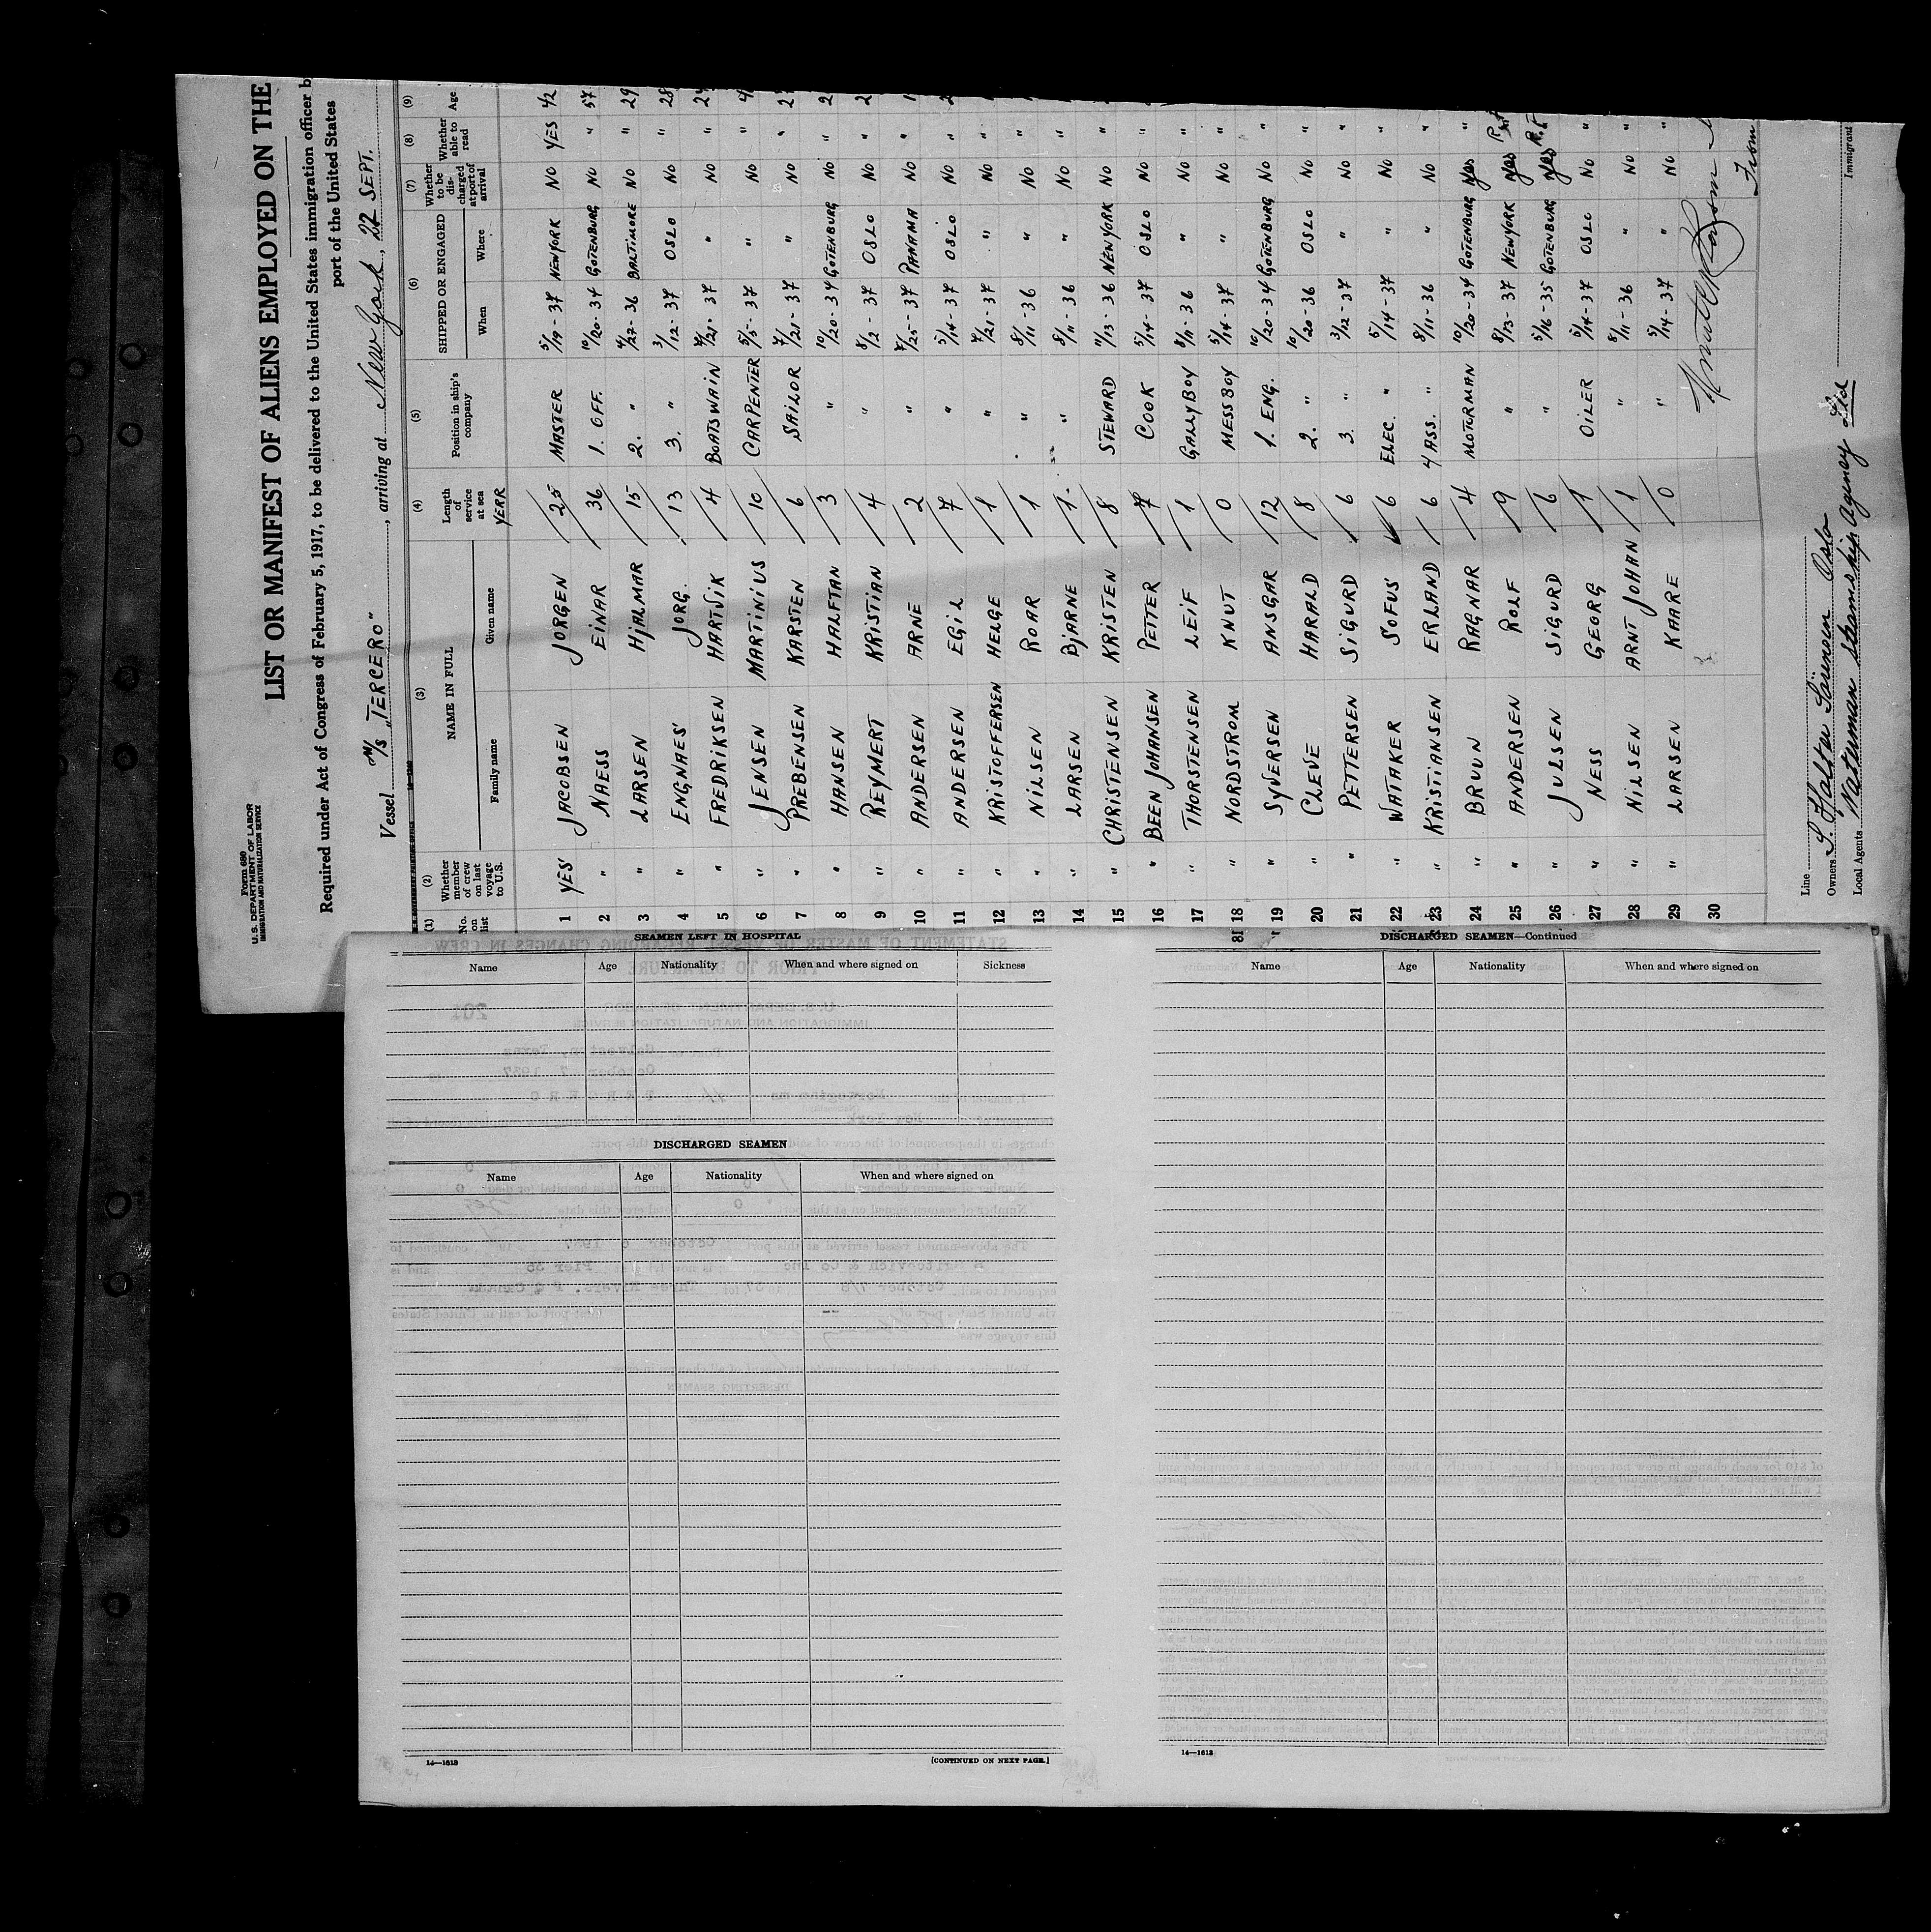 Form 680
U. S. DEPARTMENT OF LABOR
IMMIGRATION AND NATURALIZATION SERVICE
LIST OR MANIFEST OF ALIENS EMPLOYED ON THE
Required under Act of Congress of February 5, 1917, to be delivered to the United States immigration officer b
port of the United States
Vessel M/S „TERCERO", arriving at New York, 22 SEPT.
(1) (2) (3) (4) (5) (6) (7) (8) (9)
No. on list Whether member of crew on last voyage to U.S. NAME IN FULL Family name Given name Length of service at sea YEAR Position in ship's company SHIPPED OR ENGAGED When Where Whether to be discharged at port of arrival Whether able to read Age
1 YES JACOBSEN JORGEN 25 MASTER 5/19-37 NEW YORK NO YES 42
2 " NAESS EINAR 36 1. OFF. 10/20-34 GOTENBURG NO " 57
3 " LARSEN HJALMAR 15 2. " 4/27-36 BALTIMORE NO " 29
4 " ENGNAES JORG. 13 3. " 3/12-37 OSLO NO " 28
5 " FREDRIKSEN HARTVIK 4 BOATSWAIN 7/21-37 " NO " 2
6 " JENSEN MARTINIUS 10 CARPENTER 5/5-37 " NO " 4
7 " PREBENSEN KARSTEN 6 SAILOR 7/21-37 " NO " 2
8 " HANSEN HALFTAN 3 " 10/20-34 GOTENBURG NO " 2
9 " REYMERT KRISTIAN 4 " 8/2-37 OSLO NO " 2
10 " ANDERSEN ARNE 2 " 7/25-37 PANAMA NO " 1
11 " ANDERSEN EGIL 7 " 5/14-37 OSLO NO " 2
12 " KRISTOFFERSEN HELGE 1 " 7/21-37 " NO " 1
13 " NILSEN ROAR 1 " 8/11-36 " NO " 1
14 " LARSEN BJARNE 1. " 8/11-36 " NO " 1
15 " CHRISTENSEN KRISTEN 8 STEWARD 11/13-36 NEW YORK NO " 2
16 " BEEN JOHANSEN PETTER 7 COOK 5/14-37 OSLO NO "
17 " THORSTENSEN LEIF 1 GALLYBOY 8/11-36 " NO "
18 " NORDSTROM KNUT 0 MESSBOY 5/14-37 " NO "
19 " SYVERSEN ANSGAR 12 1. ENG. 10/20-34 GOTENBURG NO "
20 " CLEVE HARALD 8 2. " 10/20-36 OSLO NO "
21 " PETTERSEN SIGURD 6 3. " 3/12-37 " NO "
22 " WATAKER SOFUS 6 ELEC. " 5/14-37 " NO "
23 " KRISTIANSEN ERLAND 6 4 ASS. " 8/11-36 " NO "
24 " BRUUN RAGNAR 4 MOTORMAN 10/20-34 GOTENBURG yes "
25 " ANDERSEN ROLF 9 " 8/13-37 NEW YORK yes
26 " JULSEN SIGURD 6 " 5/16-35 GOTENBURG yes
27 " NESS GEORG 1 OILER 5/14-37 OSLO NO "
28 " NILSEN ARNT JOHAN 1 " 8/11-36 " NO "
29 " LARSEN KAARE 0 " 5/14-37 " NO "
30
From
Line
Owners
Local Agents Waterman Steamship Agency Ltd
Immigrant
SEAMEN LEFT IN HOSPITAL
Name Age Nationality When and where signed on Sickness
DISCHARGED SEAMEN
Name Age Nationality When and where signed on
14—1613
[CONTINUED ON NEXT PAGE.]
18
DISCHARGED SEAMEN—Continued
Name Age Nationality When and where signed on
14—1613